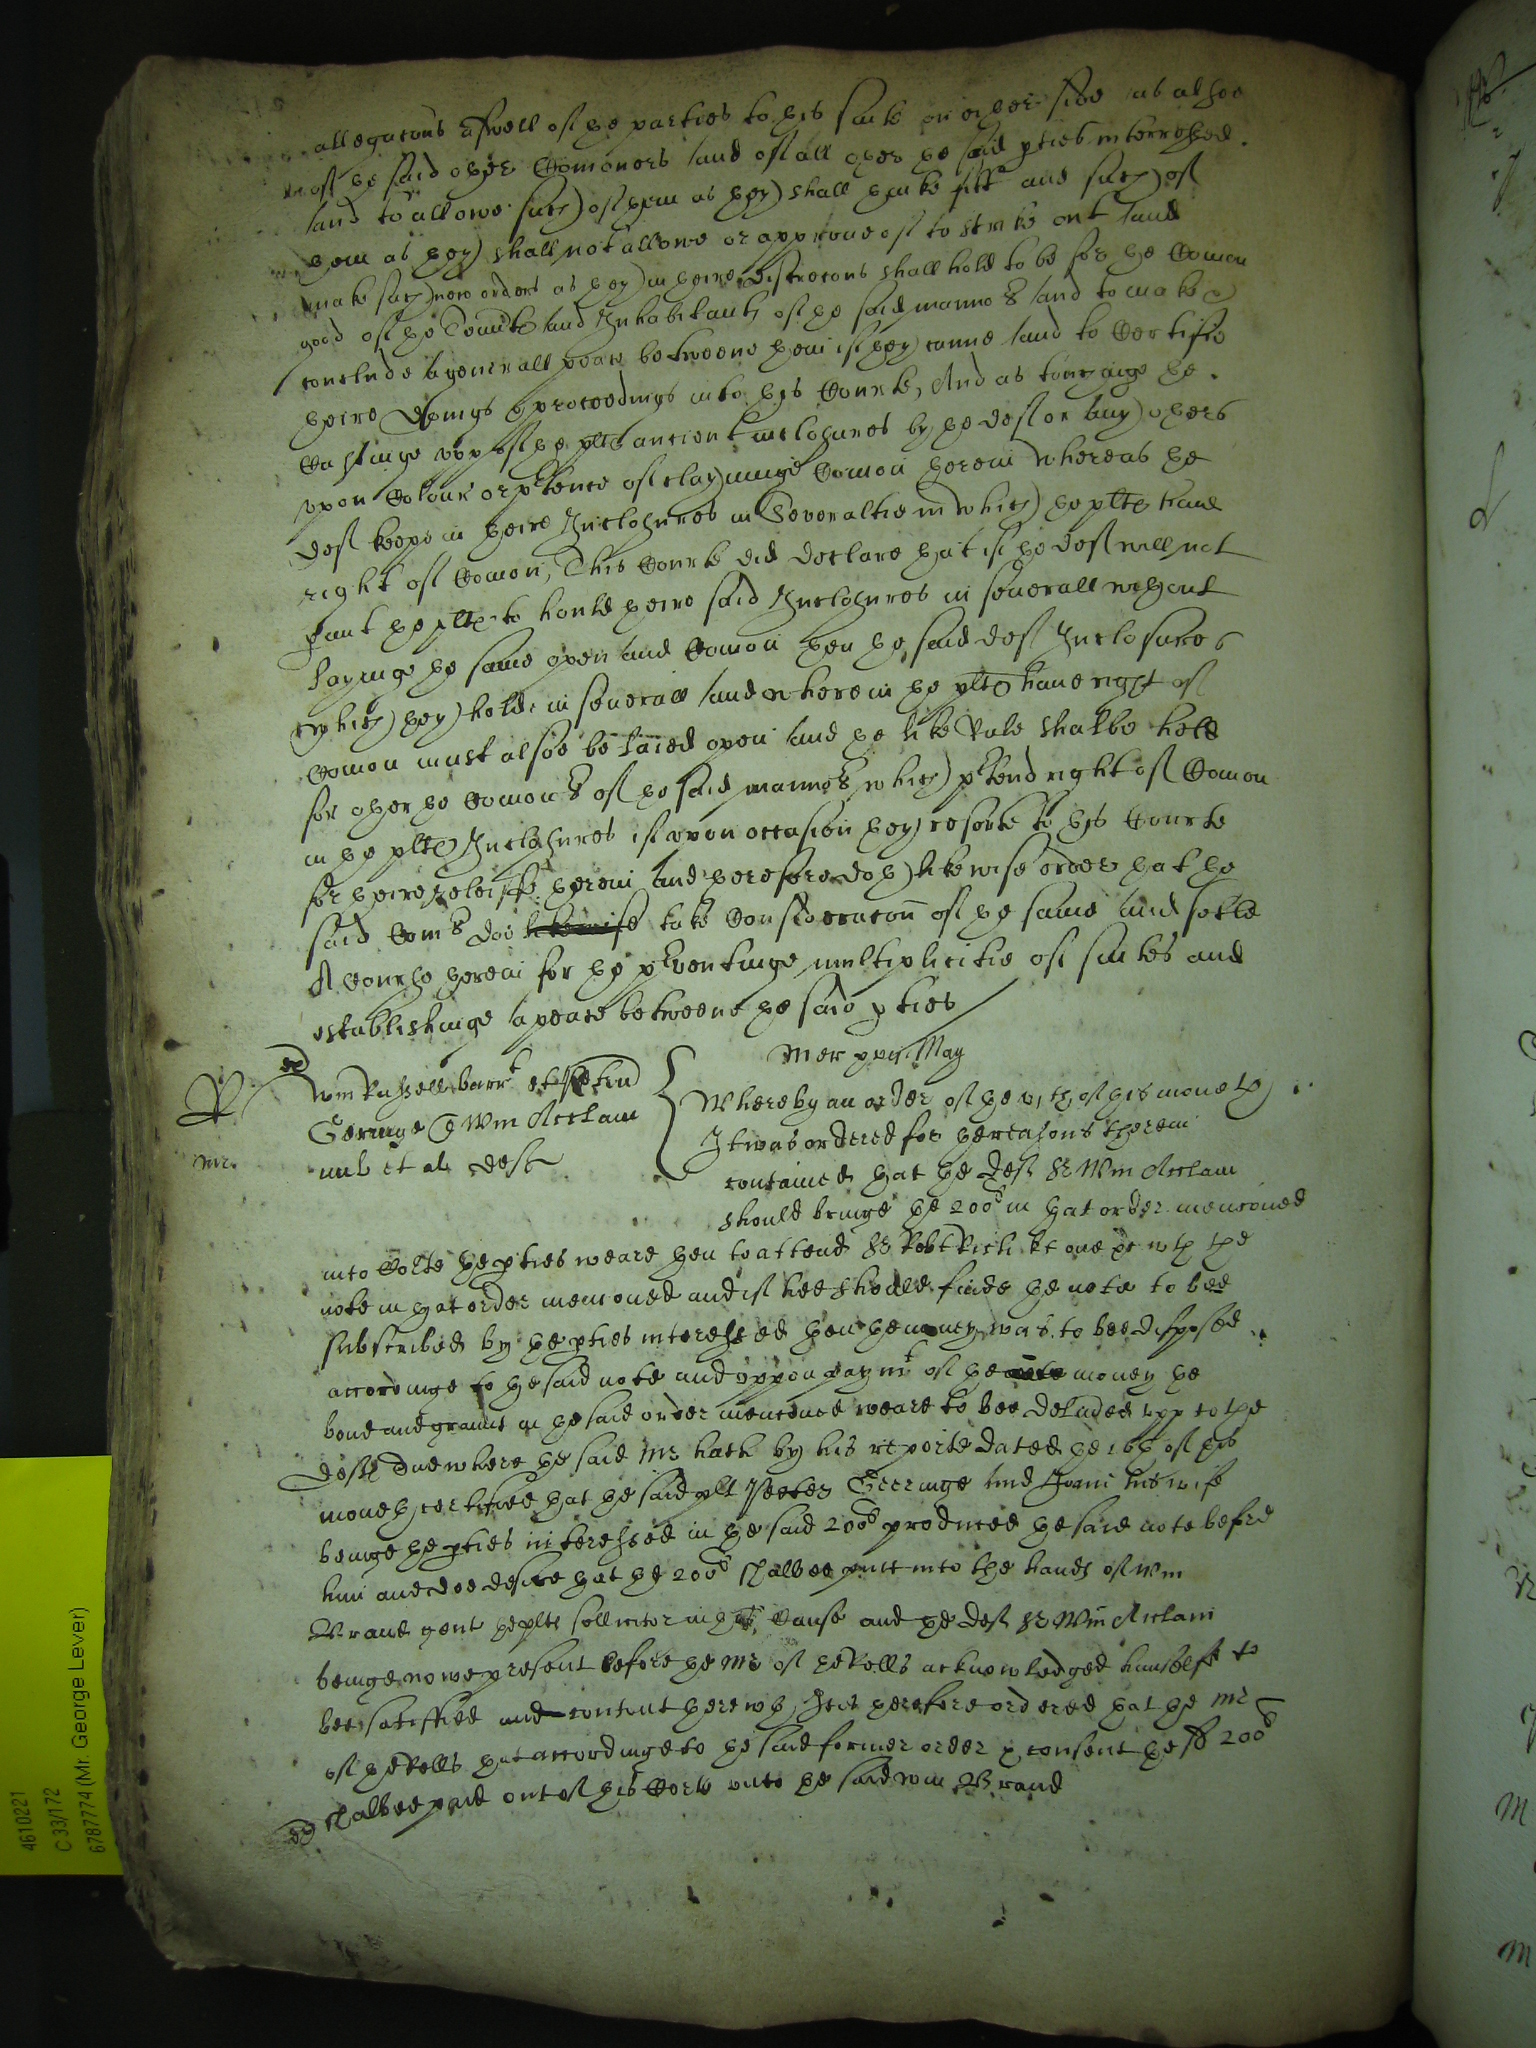 allegacons aswell of the parties to this suite on either side as alsoe
of the said other Comoners and of all other the said pties interressed
and to allowe such of them as they shall thinke fitt and such of
them as they shall not allowe or approue of to strike out and
make such new orders as they in theire discrecons shall hold to be for the Comon
good of the Tennts and Inhabitants of the said mannor and to make &
conclude a generall peace betweene them if they canne and to Certifie
theire doings & proceedings into this Courte, And as touchinge the
Castinge upp of the plts ancient inclosures by the deft or any others
vpon Colour or ptence of clayminge Comon therein whereas the
deft keepe in theire Inclosures in Severaltie in which the plts haue
right of Comon, This Courte did declare that if the deft will not
the plts to hould theire said Inclosures in seuerall without
layinge the same open and Comon then the said deft Inclosures
which they holde in seuerall and wherein the plts haue right of
Comon must alsoe be laied open and the like Rule shalbe held
for other the Comoners of the said mannor which ptend right of Comon
in the plts Inclosures if vpon occasion they resorte to this Courte
for theire releiffe therein and therefore doth likewise order that the
said Comrs doe likewise take Consideracon of the same and settle
A Course therein for the pventinge multiplicitie of suites and
establishinge a peace betweene the said pties
Mer xxii May
Wm Russell barrt et
Geringe & Wm Acclam
mil et al deft
mr
Whereby an order of the vith of this moneth
It was ordered for the reasons therein
contained that the deft Sr Wm Acclam
should bringe the 200l in that order mencioned
into Corte the pties weare then to attend Sr Robt Rich kt one &c wth the
note in that order mencioned and if hee should finde the note to bee
subscribed by the pties interessed then the money was to bee disposed
accordinge to the said note and uppon paymt of the note money the
bond and grannt in the said order mencioned weare to bee delivded upp to the
deft And where the said Mr hath by his reporte dated the 16th of this
moneth certified that the said plt Peeter Gerringe and Joane his wife
beinge the pties interessed in the said 200l produced the said note before
him and doe desire that the 200l shalbee putt into the hands of Wm
Brand gent the plts sollicitor in this Cause and the deft Sr Wm Acclam
beinge nowe present before the Mr of the Rolls acknowledged himselfe to
bee satisfied and content therewth, It is therefore ordered that the Mr
of the Rolls that accordinge to the said former order & consent the sd 200l
shalbee paid out of this Corte unto the said Wm Brand
4610221
C 33/172
6787774 (Mr. George Lever)